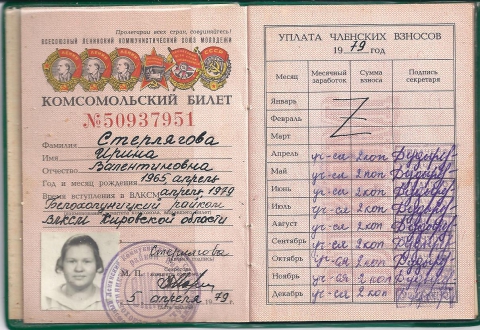 Пролетарии всех стран, соединяйтесь!
ВСЕСОЮЗНЫЙ ЛЕНИНСКИЙ КОММУНИСТИЧЕСКИЙ СОЮЗ МОЛОДЕЖИ
КОМСОМОЛЬСКИЙ БИЛЕТ
№50937951
Фамилия Стерлягова
Имя Ирина
Отчество Валентиновна
Год и месяц рождения 1965 апрель
Время вступления в ВЛКСМ апрель 1979
Белохолуницкий райком
ВЛКСМ Кировской области
М. П.
5 апреля 1979
УПЛАТА ЧЛЕНСКИХ ВЗНОСОВ
1979 год
Месяц Месячный заработок Сумма взноса Подпись секретаря
Январь
Февраль Z
Март
Апрель уч-ся 2 коп
Май уч-ся 2 коп
Июнь уч-ся 2 коп
Июль уч-ся 2 коп
Август уч-ся 2 коп
Сентябрь уч-ся 2 коп
Октябрь уч-ся 2 коп
Ноябрь уч-ся 2 коп
Декабрь уч-ся 2 коп